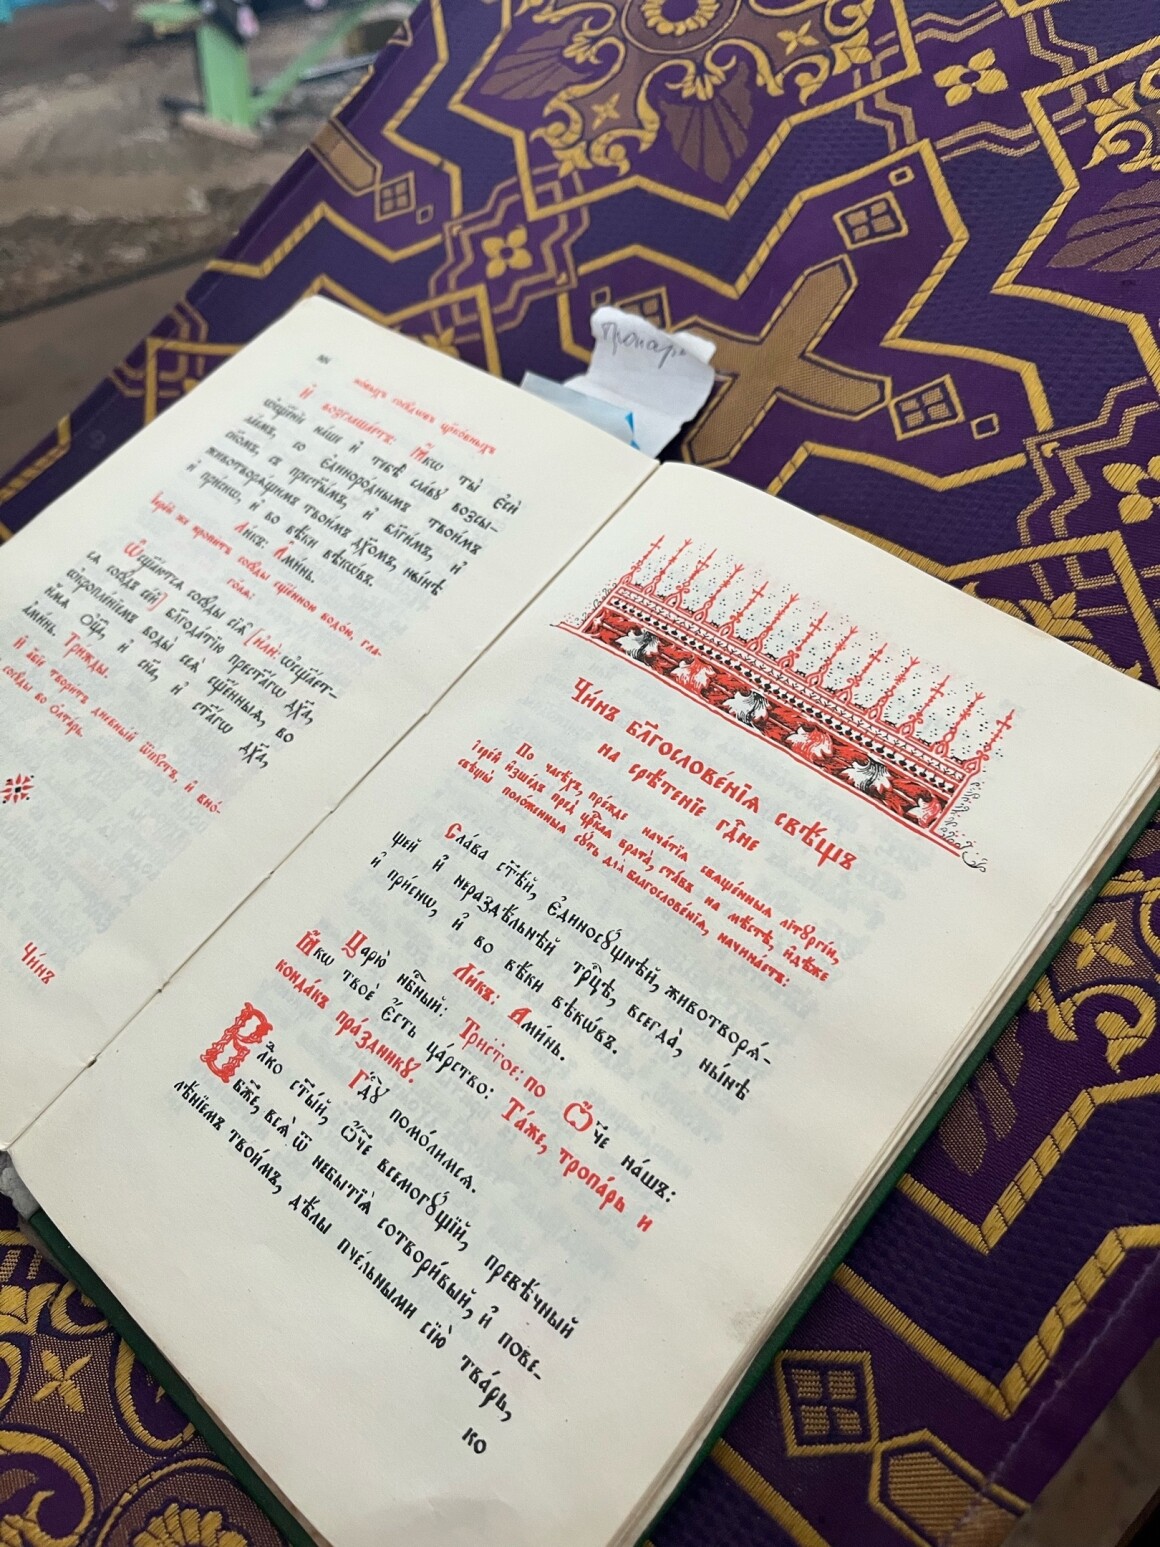 Тропарь
но́выхъ сосꙋ́дѡвъ цр҃ко́вныхъ
И҆ возглаша́етъ: Ꙗ҆́кѡ ты̀ є҆сѝ
на́ши и҆ тебѣ̀ сла́вꙋ возсы-
ла́емъ, со є҆диноро́днымъ твои́мъ
сн҃омъ, съ прест҃ы́мъ, и҆ бл҃ги́мъ, и҆
животворѧ́щимъ твои́мъ дх҃омъ, ны́нѣ
и҆ при́снѡ, и҆ во вѣ́ки вѣкѡ́въ.
Ли́къ: А҆ми́нь.
І҆ере́й же кропи́тъ сосꙋ́ды сщ҃е́нною водо́ю, гла-
го́лѧ:
Ѡ҆сщ҃а́ютсѧ сосꙋ́ды сїѧ̑ [и҆лѝ: ѡ҆сщ҃а́ет-
сѧ сосꙋ́дъ се́й] бл҃года́тїю прест҃а́гѡ дх҃а,
ѡ҆кропле́нїемъ воды̀ сеѧ̀ сщ҃е́нныѧ, во
и҆́мѧ ѻ҆ц҃а̀, и҆ сн҃а, и҆ ст҃а́гѡ дх҃а,
а҆ми́нь. Три́жды.
И҆ а҆́бїе твори́тъ дне́вный ѿпꙋ́стъ, и҆ вно́-
сосꙋ́ды во ѻ҆лта́рь.
Чи́нъ
Чи́нъ бл҃гослове́нїѧ свѣ́щъ
на срѣ́тенїе гд҇не
По часѣ́хъ, пре́жде нача́тїѧ свѧще́нныѧ лїтꙋргі́и,
і҆ере́й и҆зше́дъ пред̾ цр҃кѡ́ваѧ врата̀, ста́въ на мѣ́стѣ, и҆дѣ́же
свѣ́щы поло́женныѧ сꙋ́ть длѧ̀ благослове́нїѧ, начина́етъ:
Сла́ва ст҃ѣ́й, є҆диносꙋ́щнѣй, животворѧ́-
щей и҆ нераздѣ́льнѣй трⷪ҇цѣ, всегда̀, ны́нѣ
и҆ при́снѡ, и҆ во вѣ́ки вѣкѡ́въ.
Ли́къ: А҆ми́нь.
Царю̀ нбⷭ҇ный: Трист҃о́е: по Ѻ҆́ч҃е на́шъ:
Ꙗ҆́кѡ твоѐ є҆́сть ца́рство: Та́же, тропа́рь и
конда́къ пра́здникꙋ.
Гдⷭ҇ꙋ помо́лимсѧ.
Влⷣко ст҃ы́й, ѻ҆́ч҃е всемогꙋ́щїй, превѣ́чный
бж҃е, всѧ̑ ѿ небытїѧ̀ сотвори́вый, и҆ пове-
лѣ́нїемъ твои́мъ, дѣ́лы пче́льными сїю̀ тва́рь,
ко